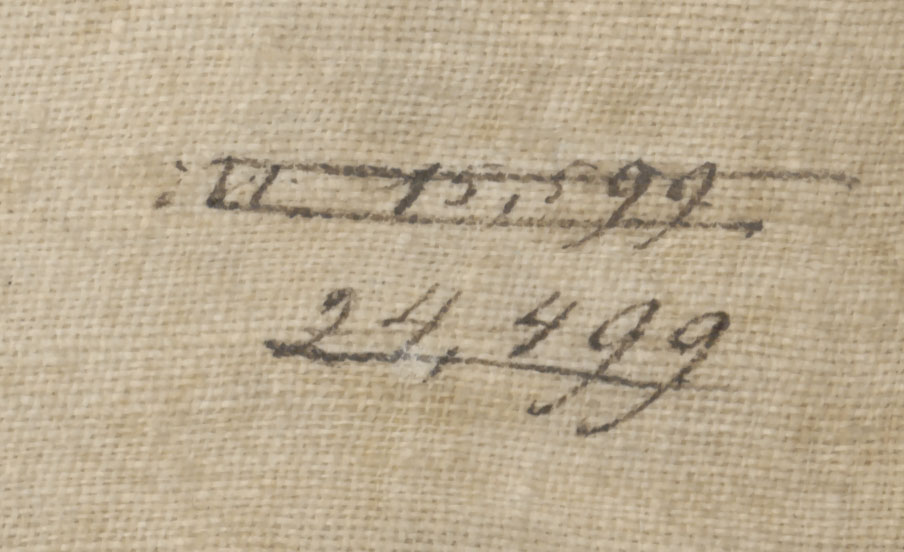 VI 15,599
24,499